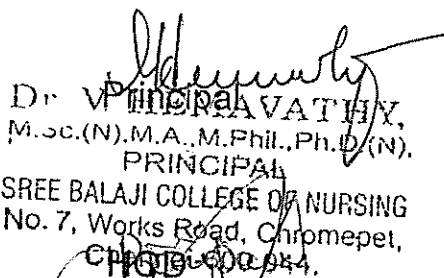 Principal
Dr V HEMAVATHY,
M.Sc.(N).M.A.,M.Phil.,Ph.D.(N).
PRINCIPAL
SREE BALAJI COLLEGE OF NURSING
No. 7, Works Road, Chromepet,
HOD